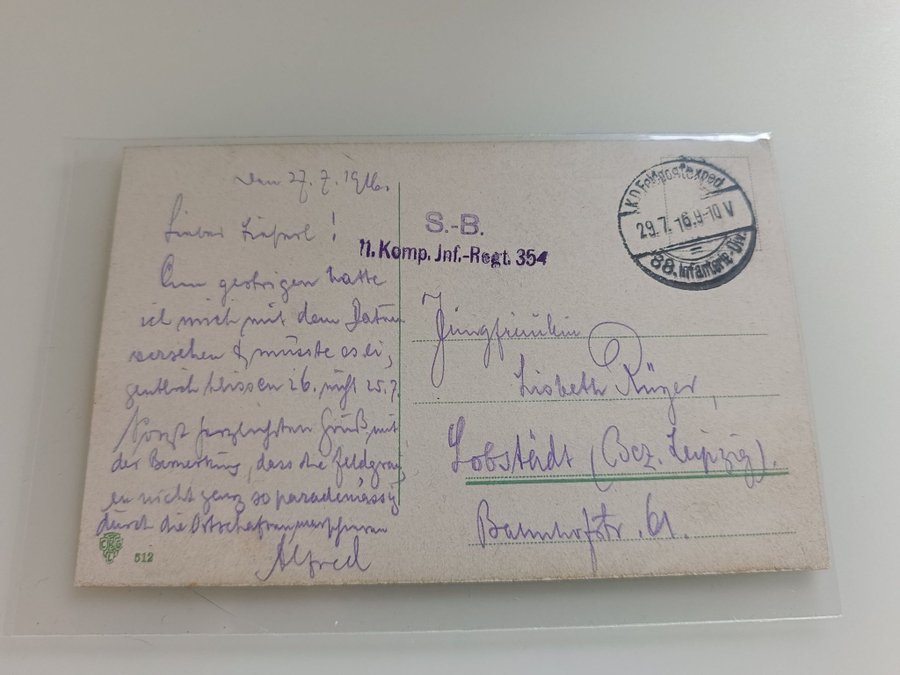 den 27.7.1916.
Liebes Lieserl!
Am gestrigen hatte
ich mich mit dem Datum
versehen & müsste es ei,
gentlich heissen 26. nicht 25.7.
herzlichsten Gruß mit
der Bemerkung, dass die Feldgrau,
en nicht ganz so parademässig
durch die
Alfred
S.-B.
11. Komp. Jnf.-Regt. 354
K.D. Feldpostexped.
29.7.16.9-10V
88. Infanterie-Div.
Jungfräulein
Lisbeth Rüger,
Lobstädt (Bez. Leipzig).
Bahnhofstr. 61.
512